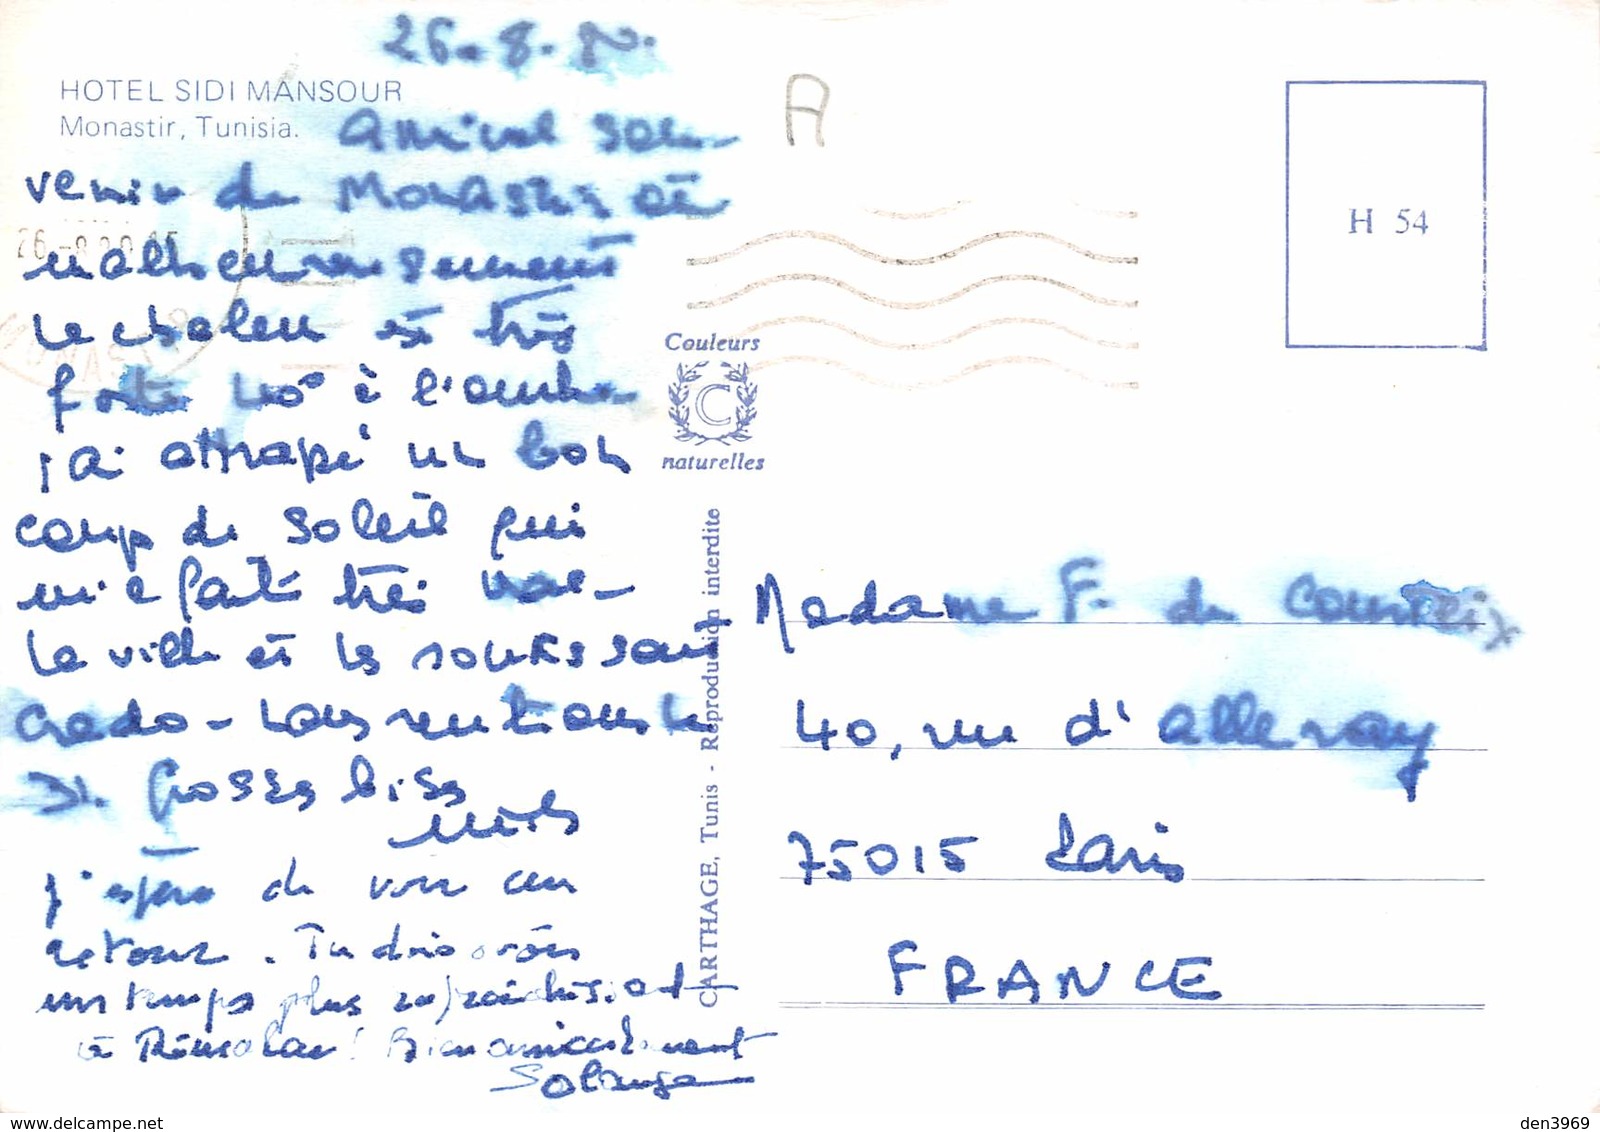 26-8-80.
HOTEL SIDI MANSOUR
Monastir, Tunisia.
Amical sou-
venir de Monastir où
malheureusement
la chaleur est très
forte 40° à l'ombre
j'ai attrapé un bon
coup de soleil qui
me fait très mal-
La ville et les souks sont
crado-
Grosses bises
j'espère te voir au
retour. Tu dois avoir
un temps plus rafraichissant
à ! Bien amicalement
Solange
A
26 -8 80
MONASTIR
Couleurs
C
naturelles
CARTHAGE, Tunis - Reproduction interdite
H 54
Madame F. de Courreix
40, rue d'alleray
75015 Paris
FRANCE
den3969